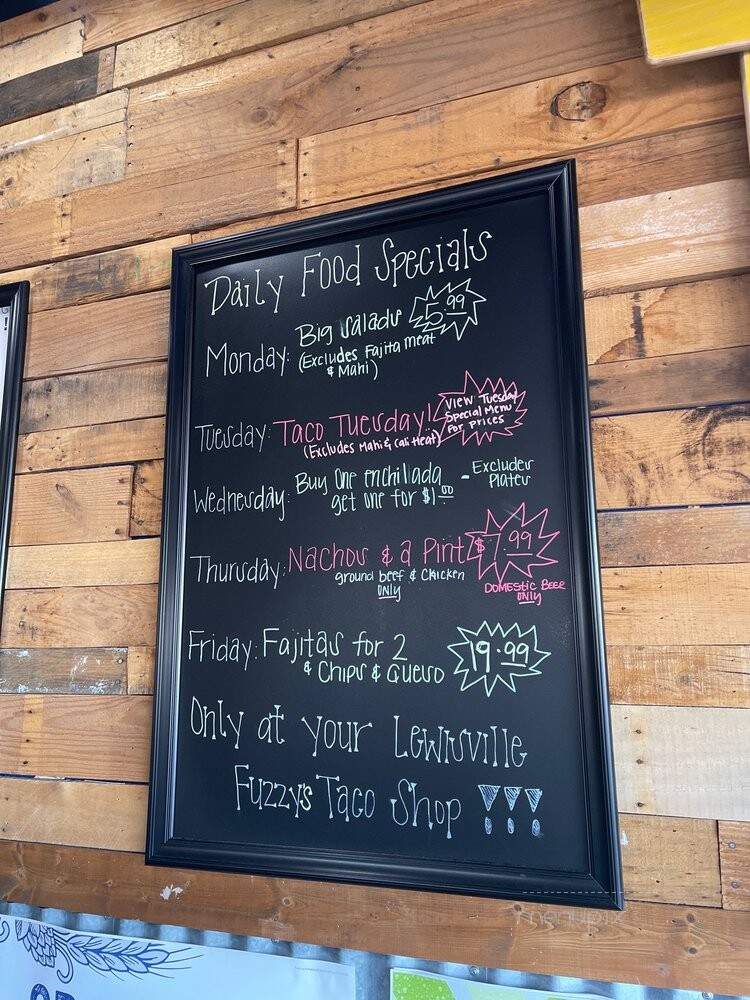 Daily Food Specials
Monday: Big Salads 5.99
(Excludes Fajita meat
& Mahi)
Tuesday: Taco Tuesday!
(Excludes Mahi & Cali Heat)
View Tuesday
Special Menu
For Prices
Wednesday: Buy One enchilada
get one for $1.00
- Excludes
Plates
Thursday: Nachos & a Pint $7.99
ground beef & Chicken
ONLY
DOMESTIC BEER
ONLY
Friday: Fajitas for 2
& Chips & Queso
19.99
Only at your Lewisville
Fuzzys Taco Shop !!!
menupix